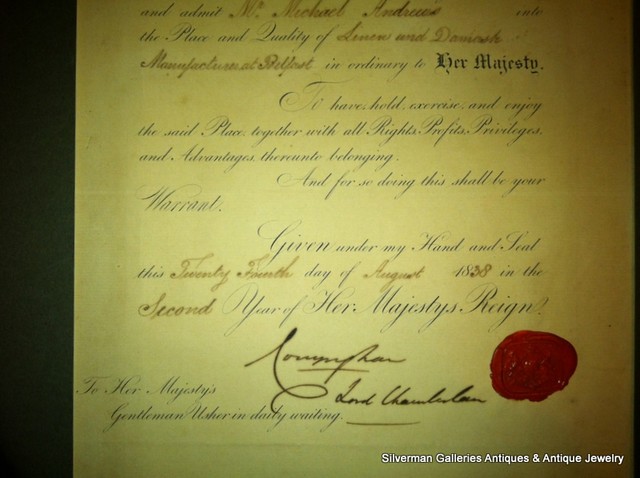 and admit Mr. Michael Andrews into
the Place and Quality of Linen and Damask
Manufacturer at Belfast in ordinary to Her Majesty.
To have, hold, exercise, and enjoy
the said Place, together with all Rights, Profits, Privileges,
and Advantages, thereunto belonging.
And for so doing this shall be your
Warrant.
Given under my Hand and Seal
this Twenty Fourth day of August 1838 in the
Second Year of Her Majestys Reign.
Conyngham
Lord Chamberlain
To Her Majesty's
Gentleman Usher in daily waiting.
Silverman Galleries Antiques & Antique Jewelry